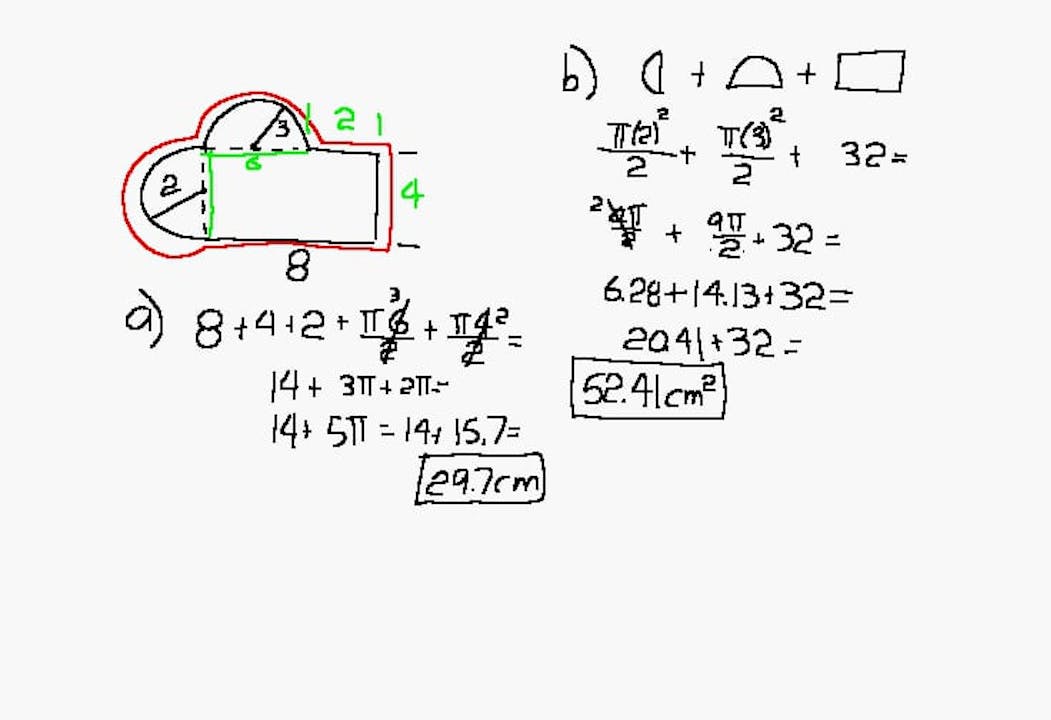 3
2
6
2
4
8
a) 8+4+2+π6/2+π4/2=
14+3π+2π=
14+5π=14+15.7=
29.7cm
b) + +
π(2)²/2+π(3)²/2+32=
4π/2+9π/2+32=
6.28+14.13+32=
20.41+32=
52.41cm²